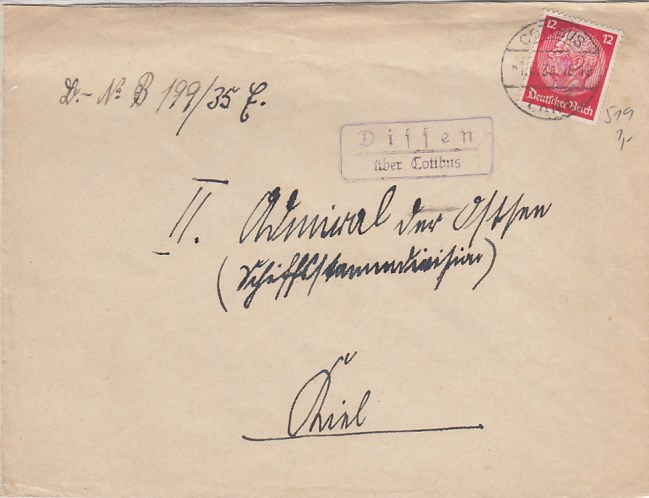 12 12
Deutsches Reich
B.-No B 199/35 E.
519
Dissen
über Cottbus
II. Admiral der Ostsee
(Schiffsstammdivision)
Kiel